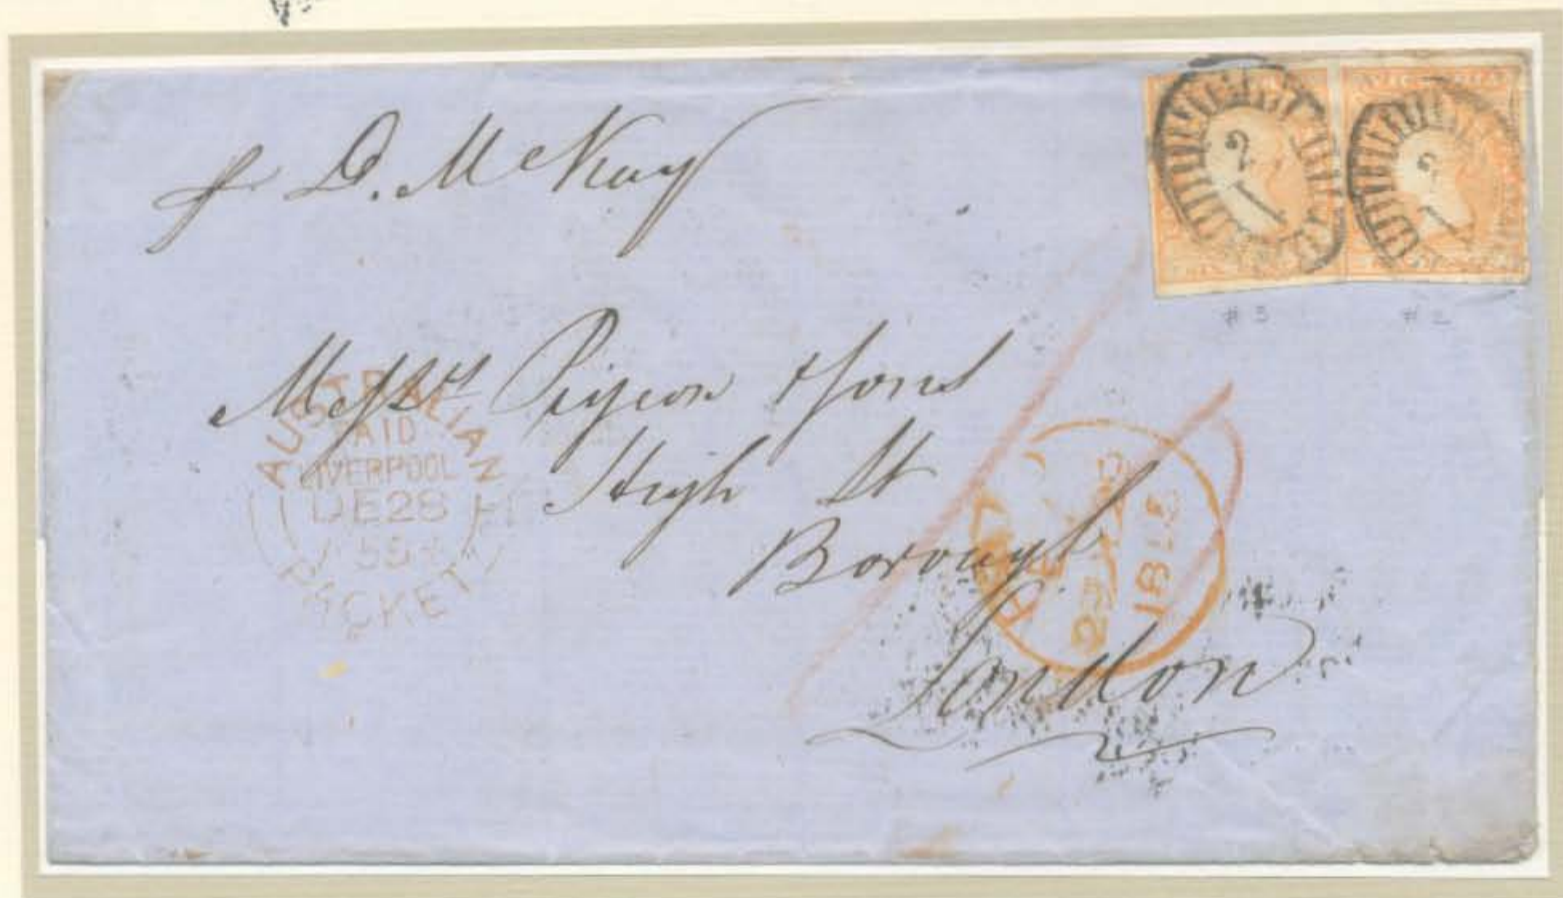 pr D. McKay
VICTORIA
2
1
2
1
#3 #2
Messrs Pigeon & Sons
High St
Borough
London
AUSTRALIAN
PAID
LIVERPOOL
DE28
PACKET
PAID